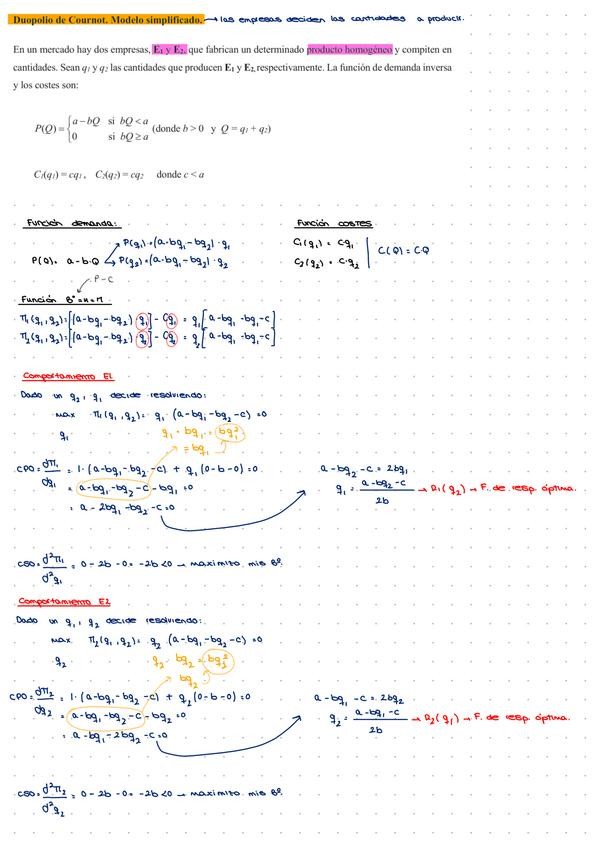 Duopolio de Cournot. Modelo simplificado. → las empresas deciden las cantidades a producir.
En un mercado hay dos empresas, E₁ y E₂, que fabrican un determinado producto homogéneo y compiten en
cantidades. Sean q₁ y q₂ las cantidades que producen E₁ y E₂, respectivamente. La función de demanda inversa
y los costes son:
P(Q) = { a − bQ si bQ < a
0 si bQ ≥ a (donde b > 0 y Q = q₁ + q₂)
C₁(q₁) = cq₁, C₂(q₂) = cq₂ donde c < a
Función demanda:
P(Q) = a - b·Q
P(q₁) = (a-bq₁-bq₂)·q₁
P(q₂) = (a-bq₁-bq₂)·q₂
Función costes
C₁(q₁) = cq₁
C₂(q₂) = c·q₂
C(Q) = C·Q
P-C
Función Bº = u = π
π₁(q₁,q₂) = [(a-bq₁-bq₂)·q₁] - Cq₁ = q₁[a-bq₁-bq₂-c]
π₂(q₁,q₂) = [(a-bq₁-bq₂)·q₂] - Cq₂ = q₂[a-bq₁-bq₂-c]
Comportamiento E1
Dado un q₂, q₁ decide resolviendo:
max π₁(q₁,q₂) = q₁·(a-bq₁-bq₂-c) = 0
q₁
q₁·bq₁ = bq₁²
= bq₁
CPO = dπ₁/dq₁ = 1·(a-bq₁-bq₂-c) + q₁(0-b-0) = 0
= a-bq₁-bq₂-c-bq₁ = 0
= a-2bq₁-bq₂-c = 0
a-bq₂-c = 2bq₁
q₁ = (a-bq₂-c)/2b → R₁(q₂) → F. de resp. óptima.
CSO = d²π₁/d²q₁ = 0-2b-0 = -2b<0 → maximizo mis Bº.
Comportamiento E2
Dado un q₁, q₂ decide resolviendo:
max π₂(q₁,q₂) = q₂·(a-bq₁-bq₂-c) = 0
q₂
q₂·bq₂ = bq₂²
bq₂
CPO = dπ₂/dq₂ = 1·(a-bq₁-bq₂-c) + q₂(0-b-0) = 0
= a-bq₁-bq₂-c-bq₂ = 0
= a-bq₁-2bq₂-c = 0
a-bq₁-c = 2bq₂
q₂ = (a-bq₁-c)/2b → R₂(q₁) → F. de resp. óptima.
CSO = d²π₂/d²q₂ = 0-2b-0 = -2b<0 → maximizo mis Bº.